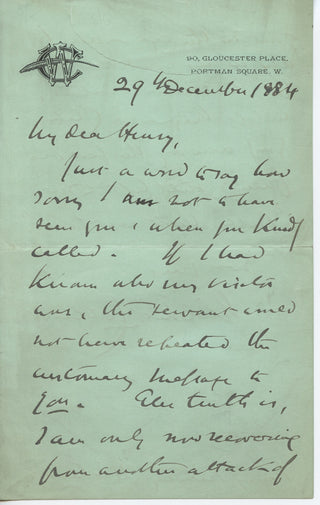 90, GLOUCESTER PLACE,
PORTMAN SQUARE, W.
29th December 1884
My dear Henry,
Just a word to say how
sorry I am not to have
seen you, when you kindly
called. If I had
known who my visitor
was, the servant would
not have repeated the
customary message to
you. The truth is,
I am only now recovering
from another attack of